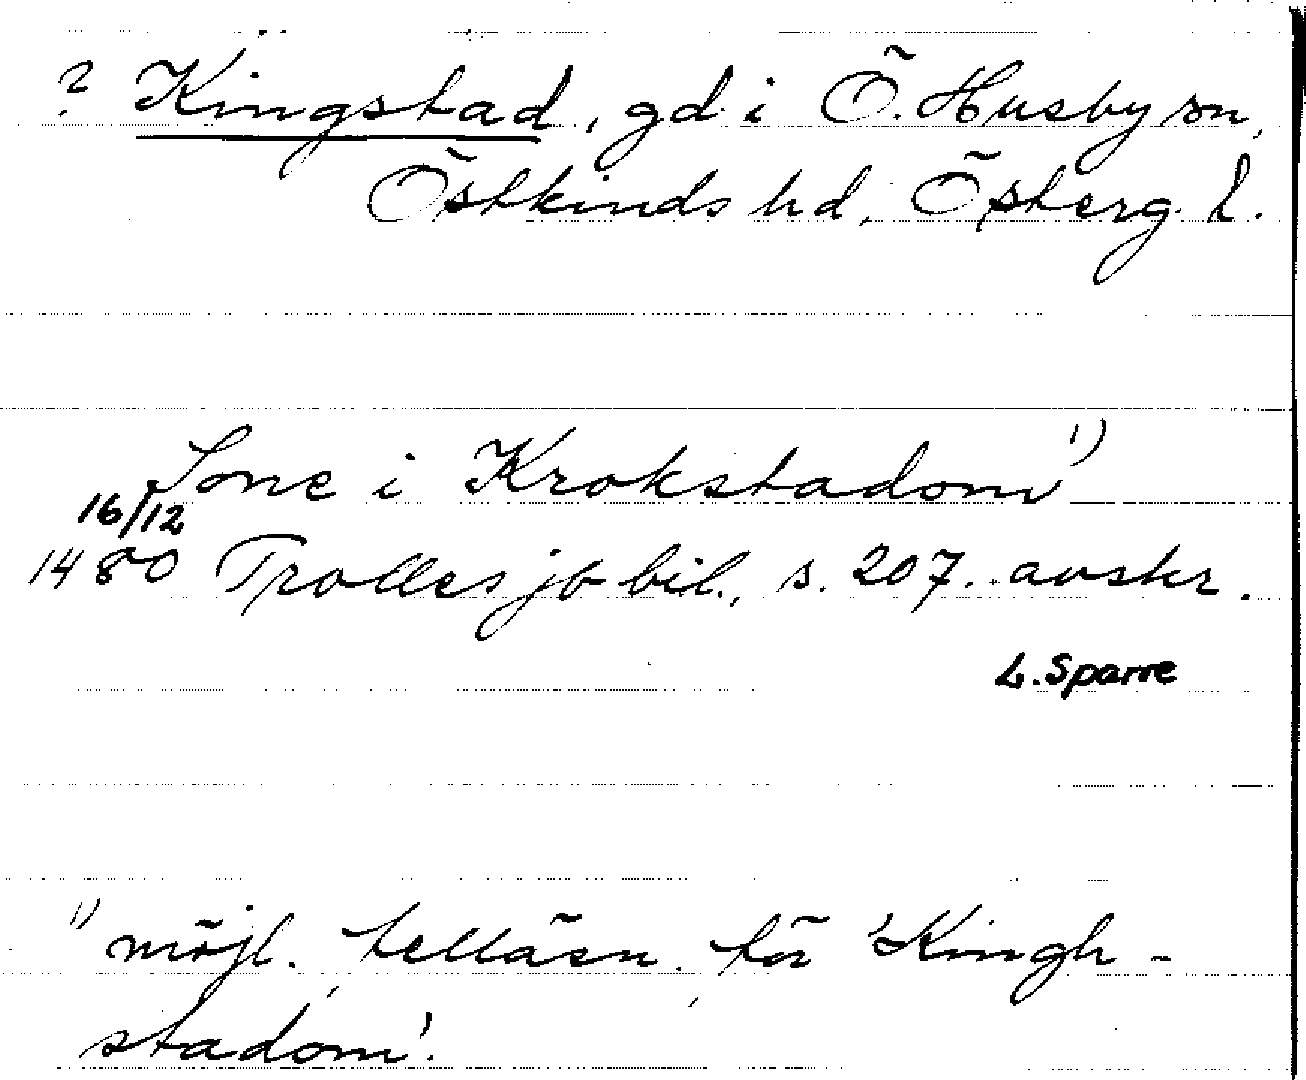 ? Kingstad, gd i Ö. Husby sn,
Östkinds hd, Österg. l.
Lone i Krokstadom 1)
16/12
1480 Trolles jb bil., s. 207. avskr.
L. Sparre
1) möjl. felläsn. för 'Kingh-
stadom'.